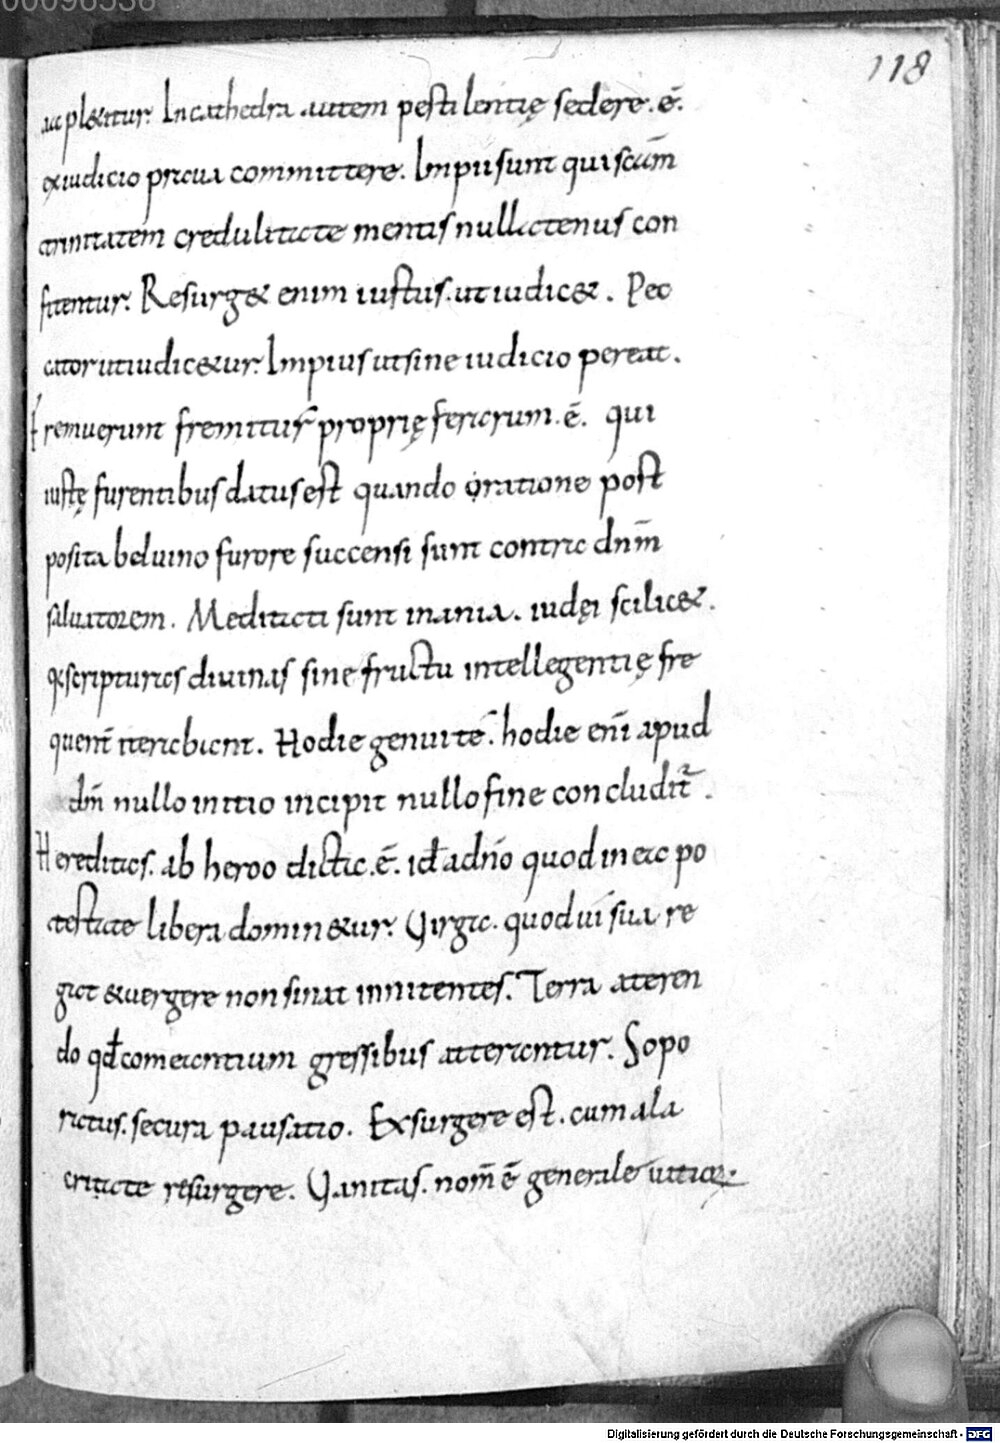 00096536
118
au plectitur. In cathedra autem pestilentię sedere. ē.
ex iudicio praua committere. Impii sunt qui scām
trinitatem credulitate mentis nullatenus con
fitentur. Resurg& enim iustus. ut iudic&. Pec
cator ut iudic&ur. Impius ut sine iudicio pereat.
Fremuerunt fremitur proprię ferarum. ē. qui
iustę furentibus datus est quando oratione post
posita beluino furore succensi sunt contra dnm̄
saluatorem. Meditati sunt inania. iudęi scilic&.
scripturas diuinas sine fructu intellegentię fre
quent̄ iterabant. Hodie genuite. hodie eni̅ apud
dm̄ nullo initio incipit nullo fine concludit.
Hereditas. ab heroo dicta. ē. id ad no quod in ea po
testate libera domin&ur. Virga. quod ui sua re
gat &uergere non sinat innitentes. Terra a teren
do qd̄ comeantium gressibus atterantur. Sopo
ratus. secura pausatio. Exsurgere est. cum ala
critate resurgere. Vanitas. nom̄ ē generale
Digitalisierung gefördert durch die Deutsche Forschungsgemeinschaft - DFG